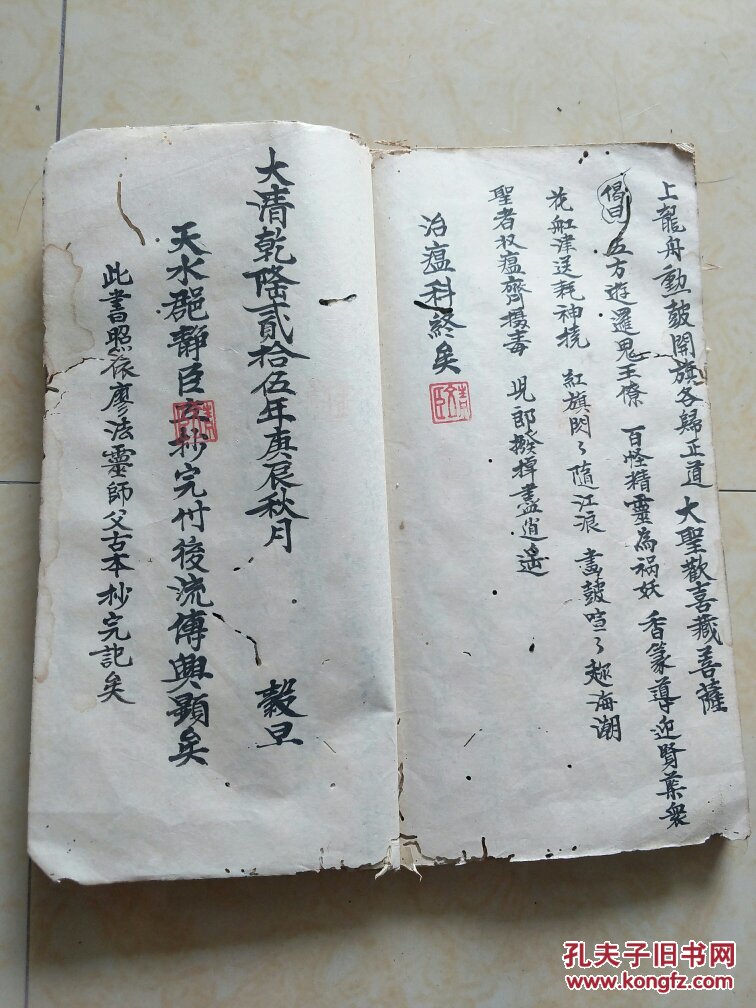 上龍舟勲皷開旗各歸正道 大聖歡喜藏菩薩
偈曰 五方遊邏鬼王僚 百怪精靈為禍妖 香篆導迎賢葉衆
花舡津送耗神橈 紅旗閃々隨江浪 畫皷喧々趂海潮
聖者收瘟齊攝毒 児郎撥棹盡逍遥
治瘟科終矣
大清乾隆貳拾伍年庚辰秋月 穀旦
天水郡静臣立抄完付後流傳興顯矣
此書照依廖法靈師父古本抄完記矣
孔夫子旧书网
www.kongfz.com